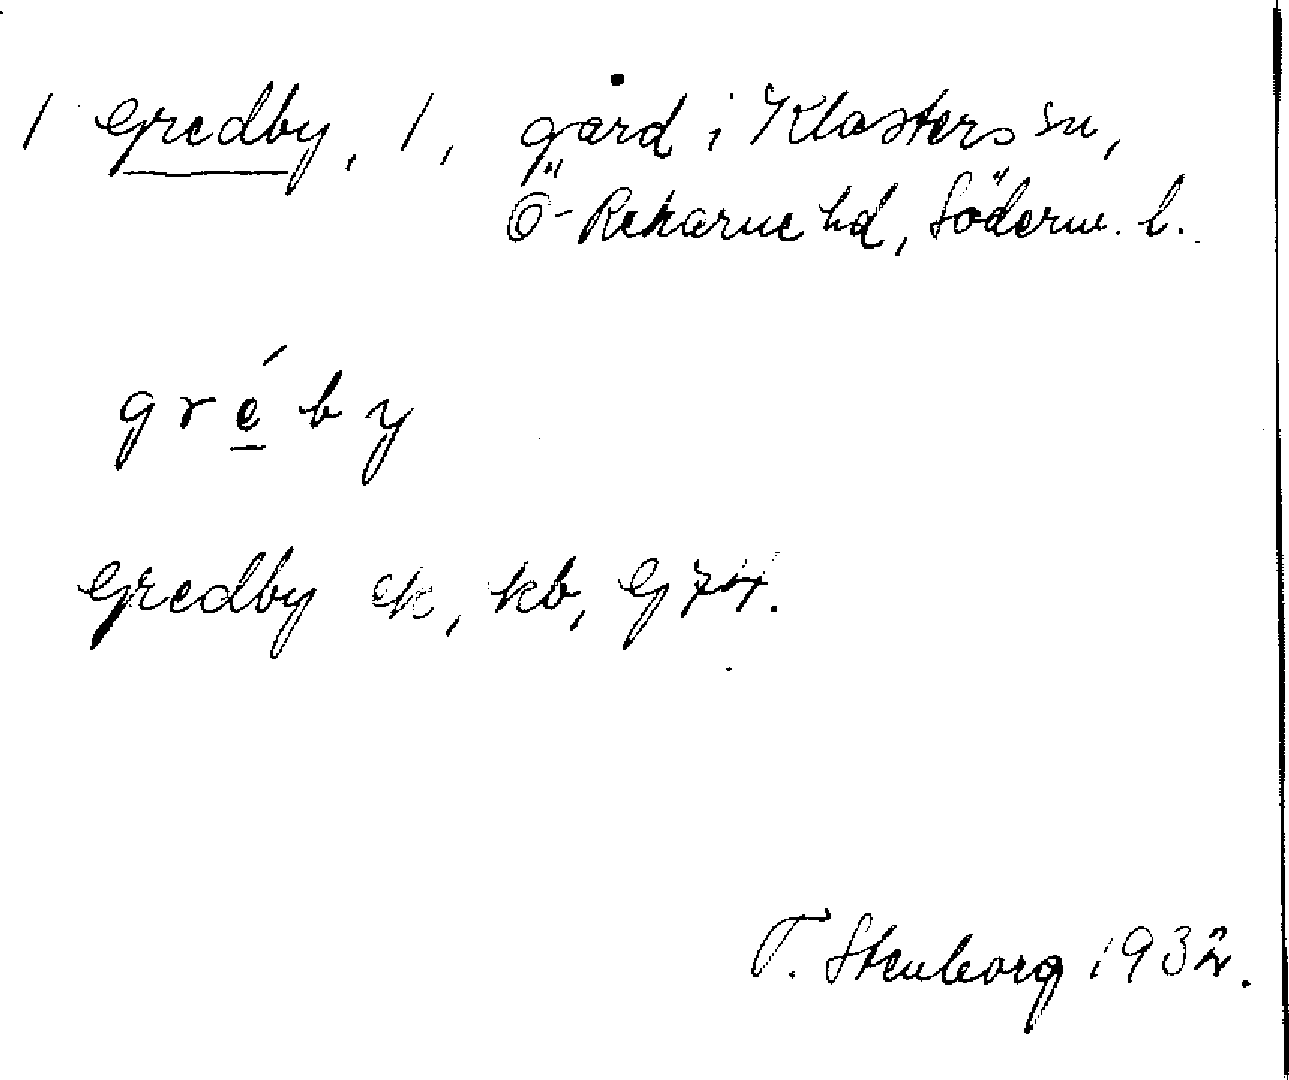 1 Gredby, 1, gård i Klosters sn,
Ö-Rekarne hd, Söderm. l.
gréby
Gredby ek, kb, G 74.
T. Stenborg 1932.